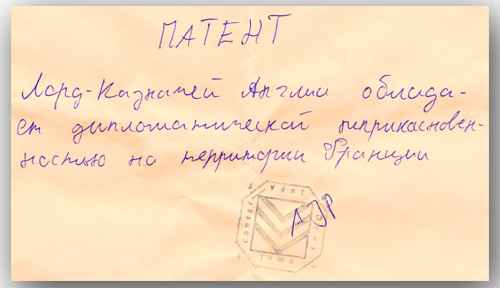 ПАТЕНТ
Лорд-Казначей Англии облада-
ет дипломатической неприкасновен-
ностью на территории Франции
АДР